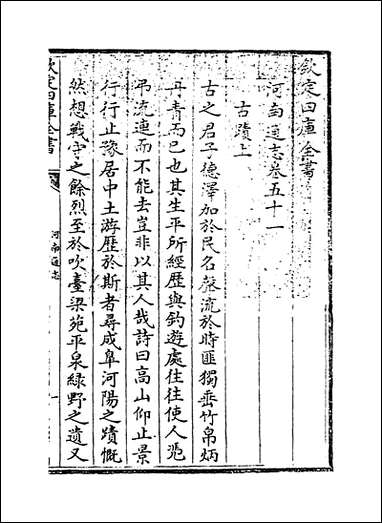 欽定四庫全書
河南通志卷五十一
古蹟上
古之君子德澤加於民名聲流於時匪獨垂竹帛炳
丹青而已也其生平所經歷與釣遊處往往使人憑
弔流連而不能去豈非以其人哉詩曰高山仰止景
行行止豫居中土游歷於斯者尋成臯河陽之蹟慨
然想戰守之餘烈至於吹臺梁苑平泉緑野之遺又
欽定四庫全書
河南通志
一